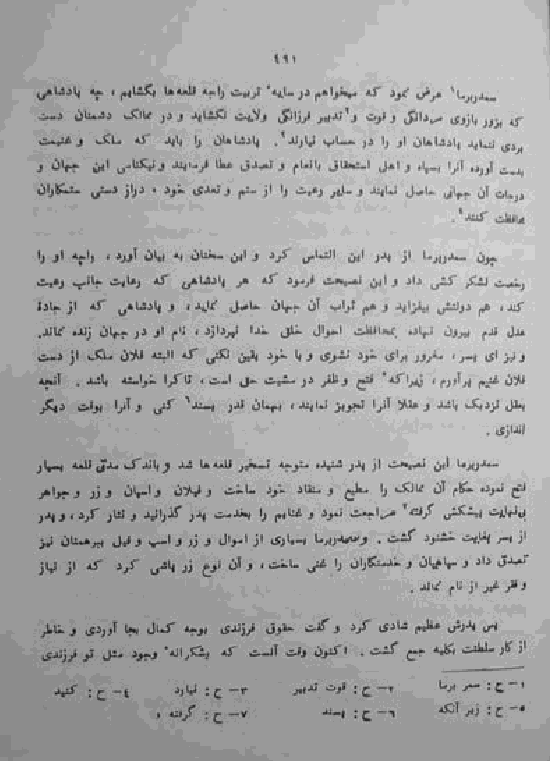 ٤٩١
سمدربرما¹ عرض نمود که میخواهم در سایهٔ تربیت راجه قلعه‌ها بکشایم، چه پادشاهی
که بزور بازوی مردانگی و قوت و² تدبیر فرزانگی ولایت نکشاید و در ممالک دشمنان دست
بردی ننماید پادشاهان او را در حساب نیارند³. پادشاهان را باید که ملک و غنیمت
بدست آورده آنرا بسپاه و اهل استحقاق بانعام و تصدق عطا فرمایند و نیکنامی این جهان و
درجات آن جهانی حاصل نمایند و سایر رعیت را از ستم و تعدی خود، دراز دستی ستمگاران
محافظت کنند⁴.
چون سمدربرما از پدر این التماس کرد و این سخنان به بیان آورد، راجه او را
رخصت لشکر کشی داد و این نصیحت فرمود که هر پادشاهی که رعایت جانب رعیت
کند، هم دولتش بیفزاید و هم ثواب آن جهان حاصل نماید، و پادشاهی که از جادهٔ
عدل قدم بیرون نهاده بمحافظت احوال خلق خدا نپردازد، نام او در جهان زنده نماند.
و نیز ای پسر، مغرور برای خود نشوی و با خود یقین نکنی که البته فلان ملک از دست
فلان غنیم برآورم، زیراکه⁵ فتح و ظفر در مشیت حق است، تا کرا خواسته باشد. آنچه
بعقل نزدیک باشد و عقلا آنرا تجویز نمایند، بهمان قدر بسند⁶ کنی و آنرا بوقت دیگر
اندازی.
سمدربرما این نصیحت از پدر شنیده متوجه تسخیر قلعه‌ها شد و باندک مدتی قلعه بسیار
فتح نموده حکام آن ممالک را مطیع و منقاد خود ساخت و فیلان و اسپان و زر و جواهر
بینهایت پیشکش گرفته⁷ مراجعت نمود و غنایم را بخدمت پدر گذرانید و نثار کرد، و پدر
از پسر بغایت خشنود گشت. و سمدربرما بسیاری از اموال و زر و اسپ و فیل ببرهمنان نیز
تصدق داد و سپاهیان و خدمتگاران را غنی ساخت، و آن نوع زر پاشی کرد که از نیاز
و فقر غیر از نام نماند.
پس پدرش عظیم شادی کرد و گفت حقوق فرزندی بوجه کمال بجا آوردی و خاطر
از کار سلطنت بکلیه جمع گشت. اکنون وقت آنست که بشکرانهٔ وجود مثل تو فرزندی
۱- ح: سمر برما ۲- ح: قوت تدبیر ۳- ح: نیارد ٤- ح: کنید
۵- ح: زیر آنکه ٦- ح: پسند ۷- ح: گرفته و